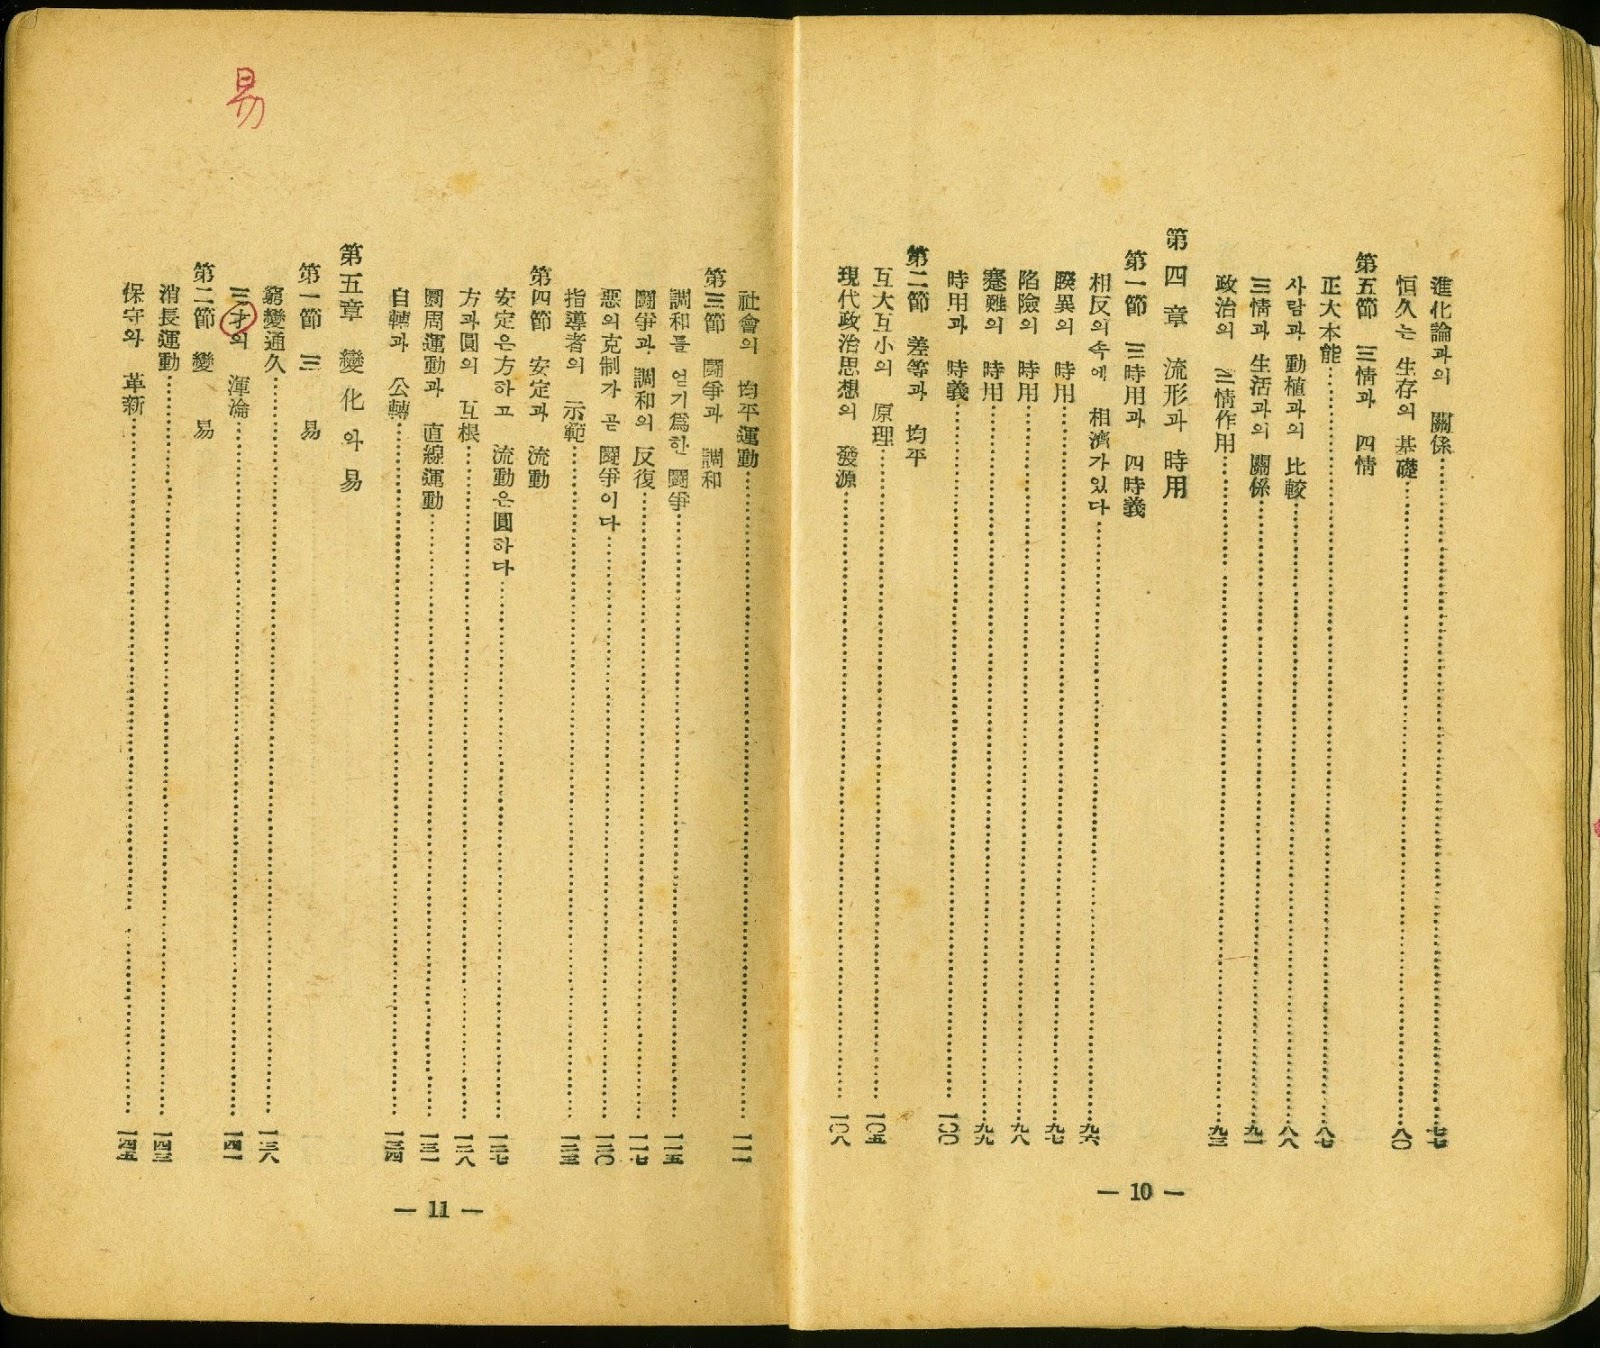 進化論과의 關係 七七
恒久는 生存의 基礎 八〇
第五節 三情과 四情
正大本能 八七
사람과 動植과의 比較 八八
三情과 生活과의 關係 九一
政治의 三情作用 九三
第四章 流形과 時用
第一節 三時用과 四時義
相反의 속에 相濟가 있다 九六
睽異의 時用 九七
陷險의 時用 九八
蹇難의 時用 九九
時用과 時義 一〇〇
第二節 差等과 均平
互大互小의 原理 一〇五
現代政治思想의 發源 一〇八
— 10 —
社會의 均平運動 一一一
第三節 鬪爭과 調和
調和를 얻기 爲한 鬪爭 一一五
鬪爭과 調和의 反復 一一七
惡의 克制가 곧 鬪爭이다 一二〇
指導者의 示範 一二三
第四節 安定과 流動
安定은 方하고 流動은 圓하다 一二七
方과 圓의 互根 一二八
圜周運動과 直線運動 一三一
自轉과 公轉 一三四
第五章 變化와 易
第一節 三易
窮變通久 一三八
三才의 渾淪 一四一
第二節 變易
消長運動 一四三
保守와 革新 一四五
— 11 —
易